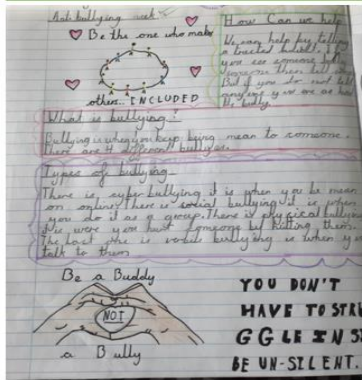 Anti bullying week
Be the one who make
others INCLUDED
How Can we help
We can help by telling
a trusted adult. If
you see someone bully
someone then tell
But if you do not tell
anyone you are as bad
the bully.
What is bullying?
Bullying is when you keep being mean to someone.
There are 4 different bullyes.
Types of bullying
There is syber bullying it is when you be mean
on online. There is social bullying it is when
you do it as a group. There is physical bullying
it is were you hurt someone by hitting them.
The last one is verbal bullying is when y
talk to them
Be a Buddy
NOT
a Bully
YOU DON'T
HAVE TO STRU
GGLE IN SI
BE UN-SILENT.